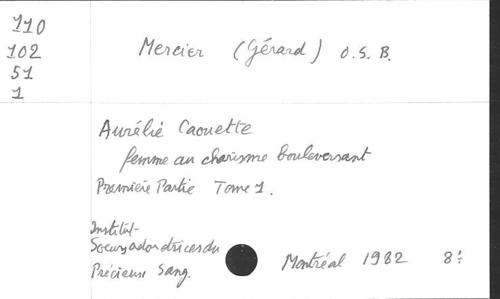 110
102
51
1
Mercier (Gérard) O.S.B.
Aurélie Caouette
femme au charisme bouleversant
Première Partie Tome 1.
Institut-
Soeurs adoratrices du
Précieux Sang.
Montréal 1982 8°